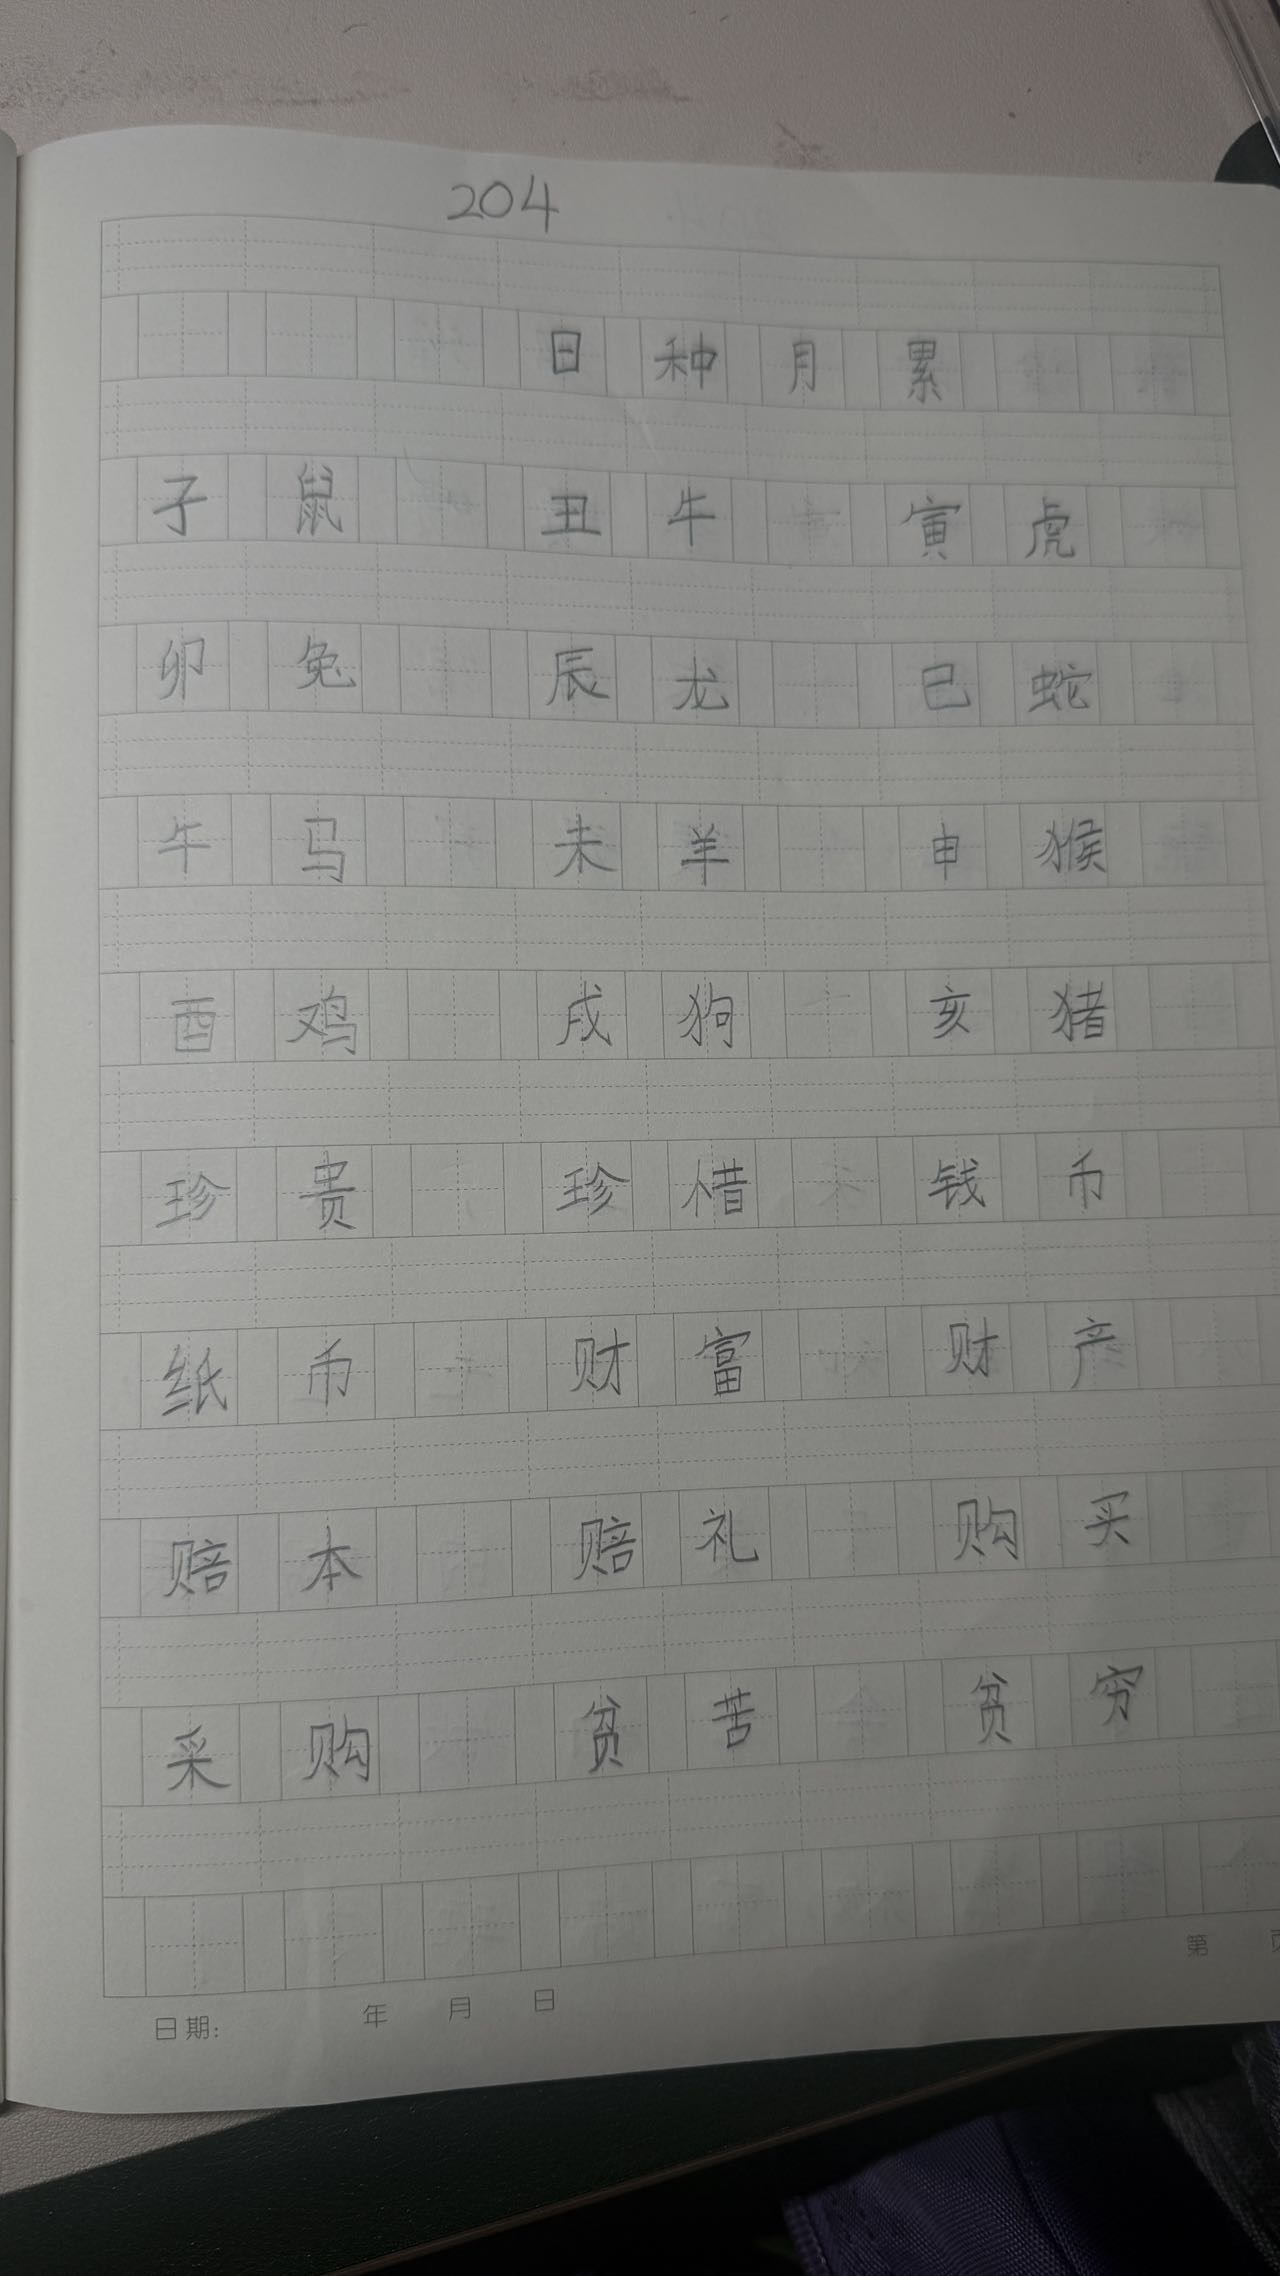 204
日 种 月 累
子 鼠 丑 牛 寅 虎
卯 兔 辰 龙 巳 蛇
午 马 未 羊 申 猴
酉 鸡 戌 狗 亥 猪
珍 贵 珍 惜 钱 币
纸 币 财 富 财 产
赔 本 赔 礼 购 买
采 购 贫 苦 贫 穷
第 页
日期: 年 月 日